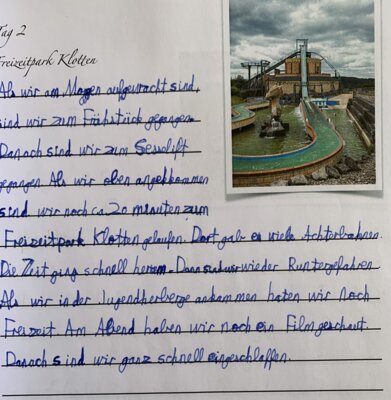 Tag 2
Freizeitpark Klotten
Als wir am Moggen aufgewacht sind,
sind wir zum Frühstück gegangen.
Danach sind wir zum Sesslift
gegangen Als wir oben angekommen
sind wir noch ca. 20 minuten zum
Freizeitpark Klotten gelaufen. Dort gab es viele Achterbahnen.
Die Zeit ging schnell herrum. Dann sind wir wieder Runtergefahren
Als wir in der Jugendherberge ankammen haten wir noch
Freizeit. Am Abend haben wir noch ein Film geschaut.
Danach sind wir ganz schnell eingeschlaffen.